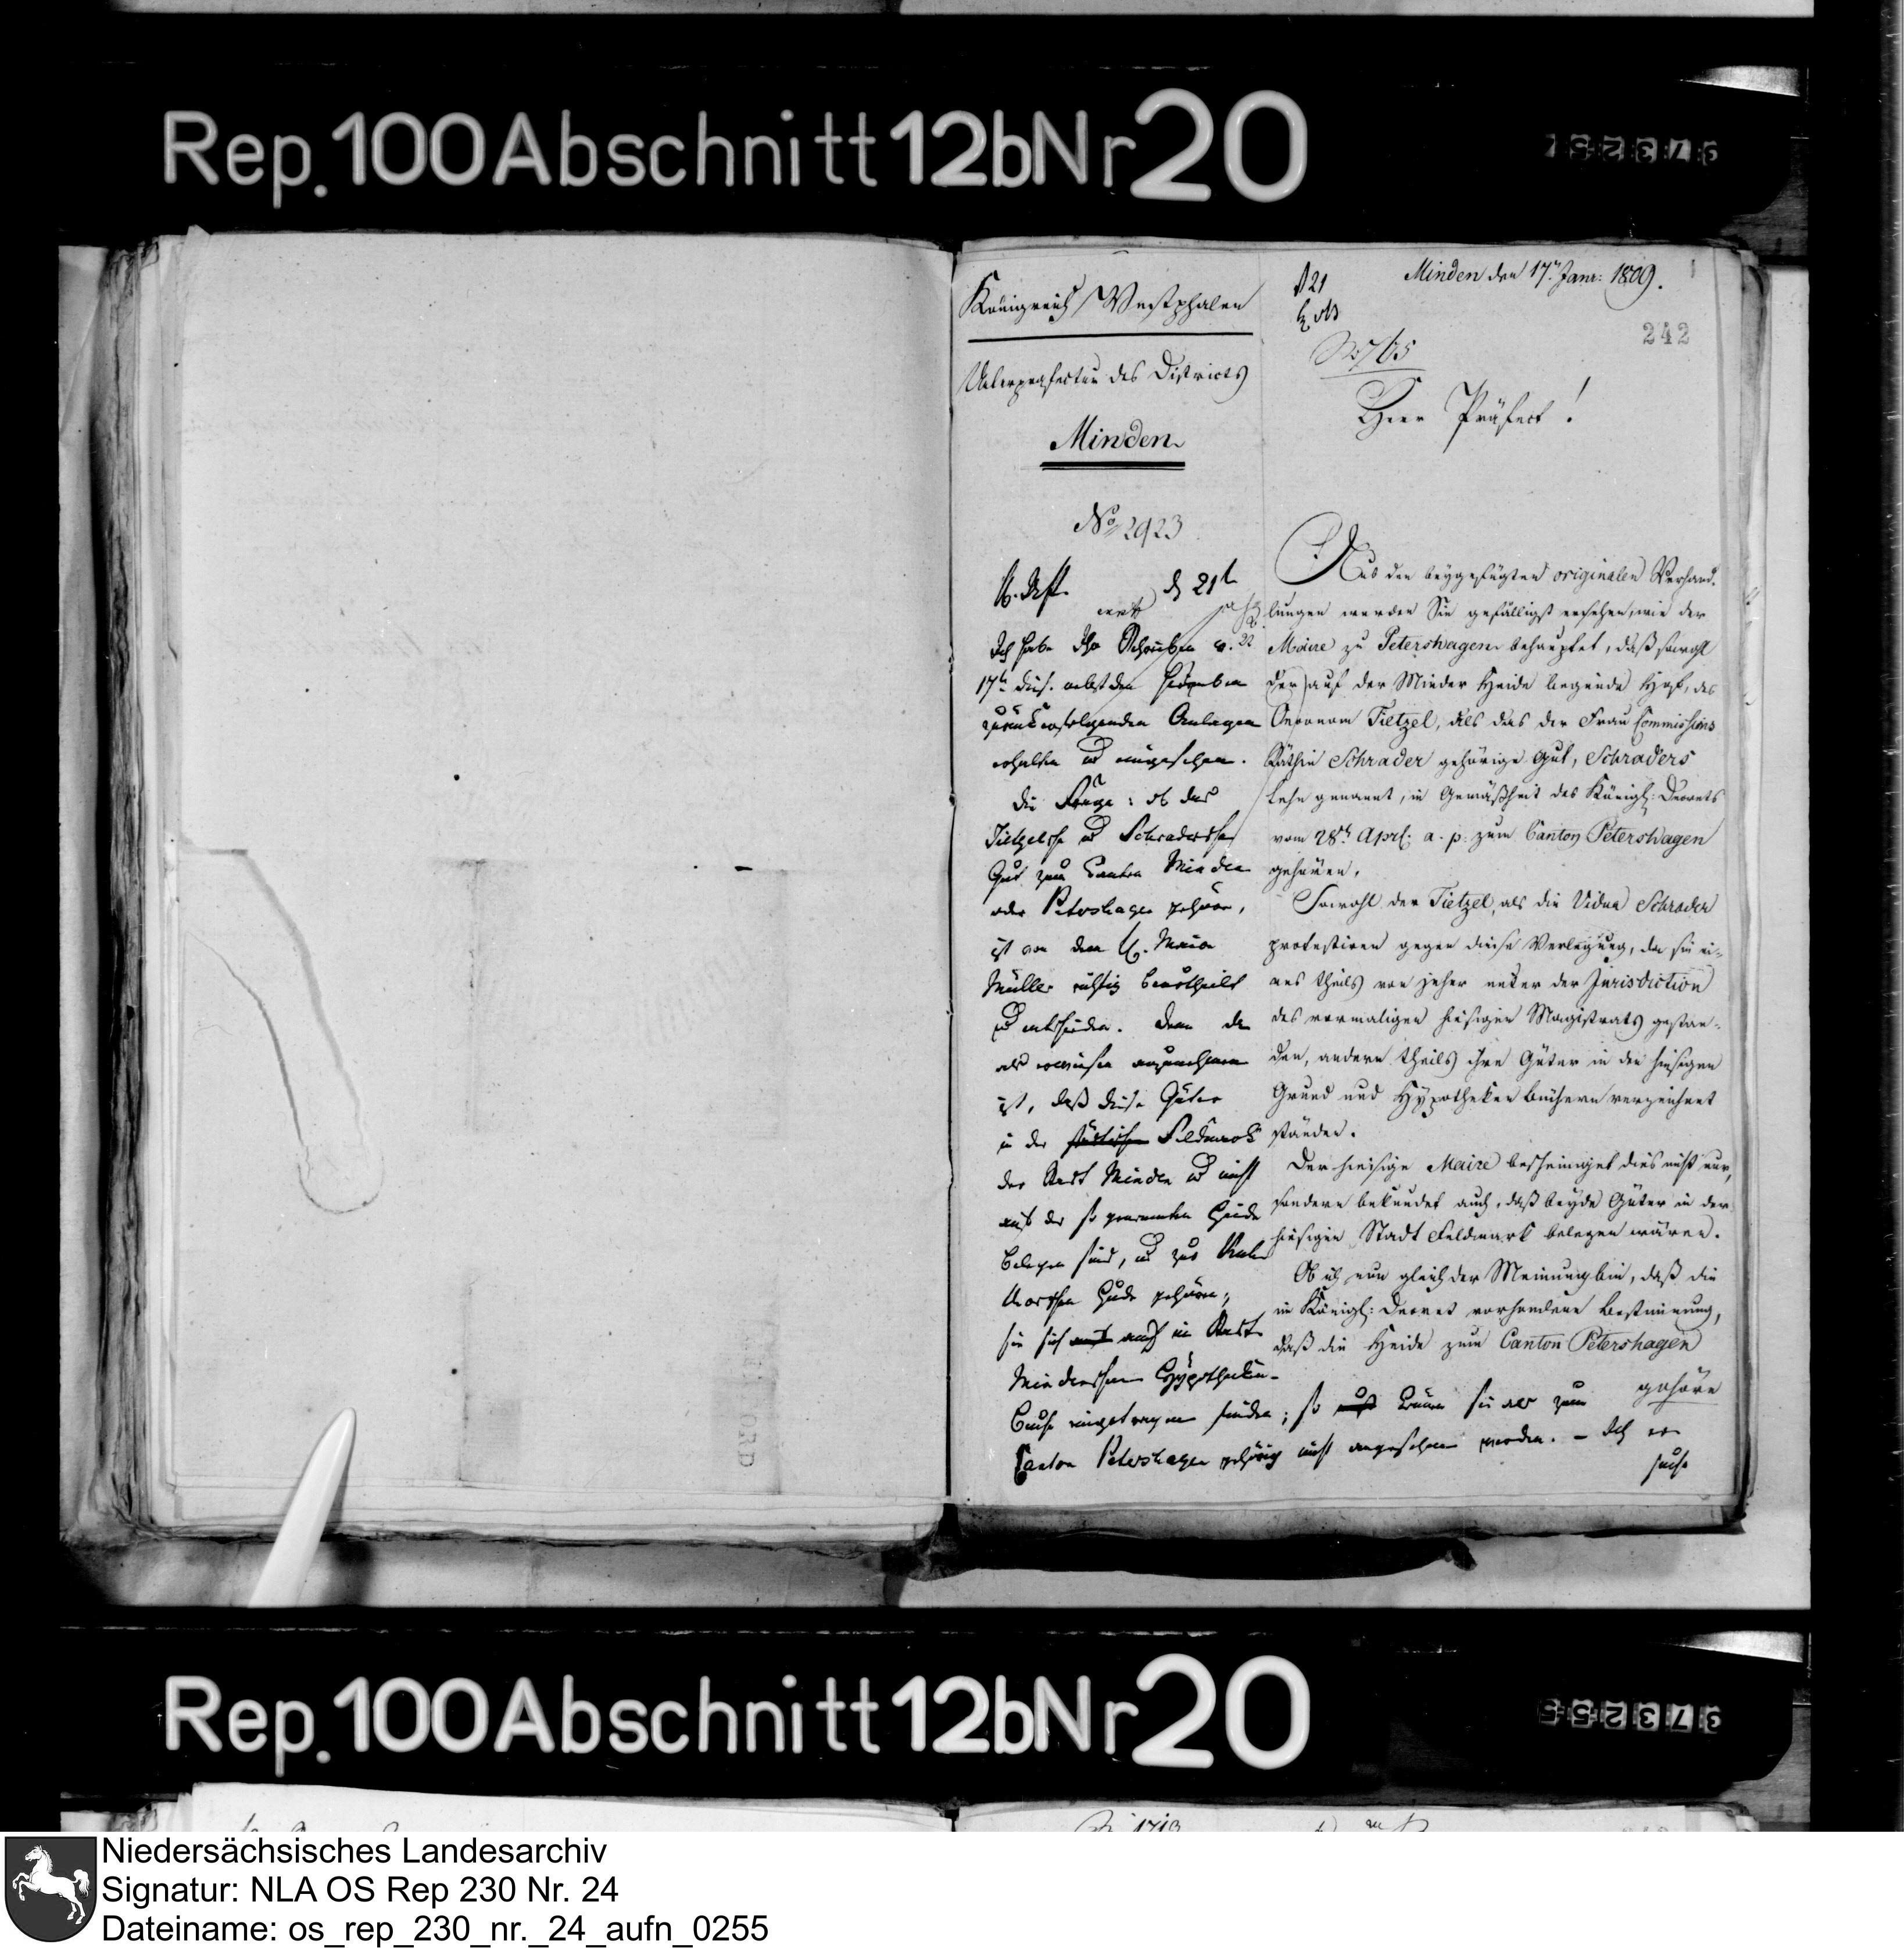 Rep. 100 Abschnitt 12b Nr 20
Königreich Westphalen
Unterpraefectur des Districts
Minden
No 2923
Minden den 17n Janr: 1809.
242
Herr Präfect!
Aus den beygefügten originalen Verhand-
lungen werden Sie gefälligst ersehen, wie der
Maire zu Petershagen behauptet, daß sowohl
der auf der Minder Heide liegende Hof, des
Oeconom Tietzel, als das der Frau Commissions
Räthin Schrader gehörige Gut, Schraders
Lehn genannt, in Gemäßheit des Königl: Decrets
vom 28n Aprl. a. p. zum Canton Petershagen
gehören.
Sowohl der Tietzel, als die Vidua Schrader
protestiren gegen diese Verlegung, da sie ei-
nes theils von jeher unter der Jurisdiction
des vormaligen hiesigen Magistrats gestan-
den, andern theils ihre Güter in den hiesigen
Grund und Hypotheken Büchern verzeichnet
ständen.
Der hiesige Maire bescheiniget dies nicht nur,
sondern bekundet auch, daß beyde Güter in der
hiesigen Stadt Feldmark belegen wären.
Ob ich nun gleich der Meinung bin, daß die
im Königl: Decret vorhandene Bestimmung,
daß die Heide zum Canton Petershagen
gehöre
d 21t
Ich habe Ihr Schreiben v.
17t dies. nebst den hierneben
zurückerfolgenden Anlagen
erhalten und eingesehen.
Die Frage: ob das
Tietzelsche und Schradersche
Gut zum Canton Minden
oder Petershagen gehöre,
ist von dem H. Maire
Müller richtig beurtheilt
und entschieden. Denn da
als erwiesen anzunehmen
ist, daß diese Güter
in der städtischen Feldmark
der Stadt Minden und nicht
auf der so genannten Heide
belegen sind, und zur
Hude gehören,
sie sich auch im Stadt
Mindenschen Hypotheken-
buche eingetragen finden; so können sie als zum
Canton Petershagen gehörig nicht angesehen werden. – Ich er
suche
Rep. 100 Abschnitt 12b Nr 20
Niedersächsisches Landesarchiv
Signatur: NLA OS Rep 230 Nr. 24
Dateiname: os_rep_230_nr._24_aufn_0255